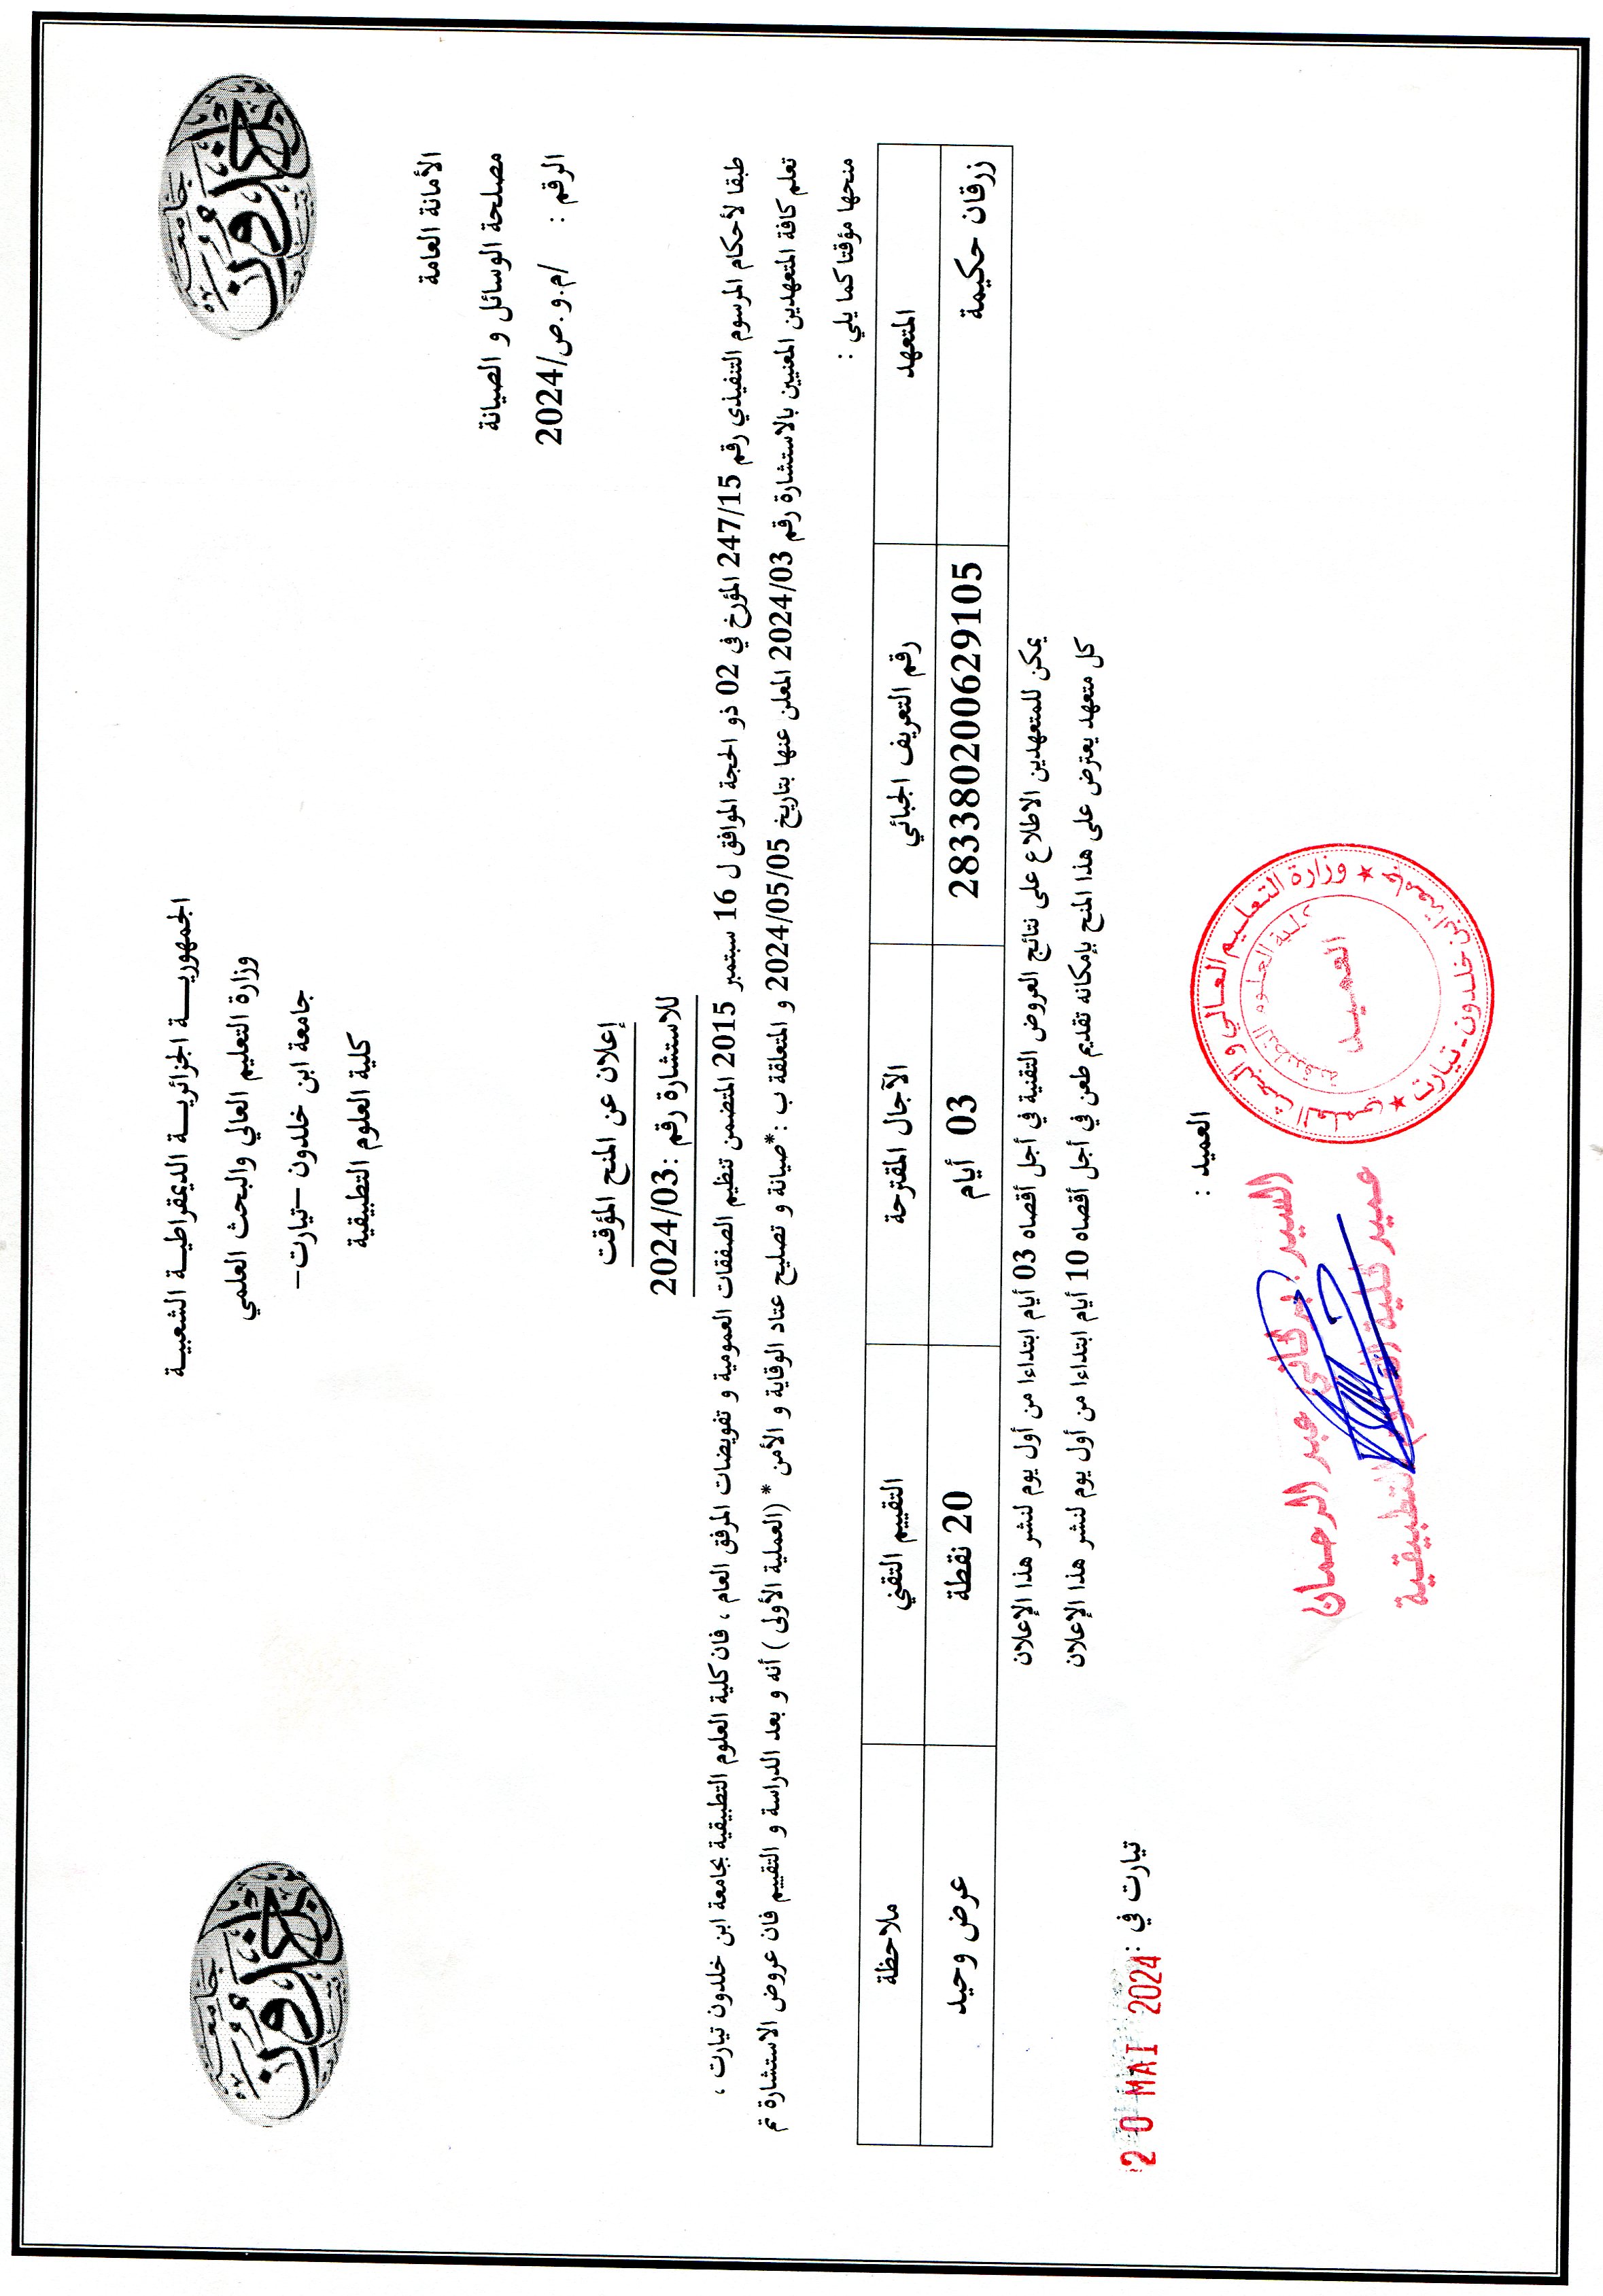 الجمهوريـــة الجزائريـــة الديمقراطيـــة الشعبيـــة
وزارة التعليم العالي والبحث العلمي
جامعة ابن خلدون –تيارت–
كلية العلوم التطبيقية
الأمانة العامة
مصلحة الوسائل و الصيانة
الرقم : /م.و.ص/2024
إعلان عن المنح المؤقت
للاستشارة رقم :2024/03
طبقا لأحكام المرسوم التنفيذي رقم 247/15 المؤرخ في 02 ذو الحجة الموافق ل 16 سبتمبر 2015 المتضمن تنظيم الصفقات العمومية و تفويضات المرفق العام ، فان كلية العلوم التطبيقية بجامعة ابن خلدون تيارت ،
تعلم كافة المتعهدين المعنيين بالاستشارة رقم 2024/03 المعلن عنها بتاريخ 2024/05/05 و المتعلقة ب :*صيانة و تصليح عتاد الوقاية و الأمن * (العملية الأولى ) أنه و بعد الدراسة و التقييم فان عروض الاستشارة تم
منحها مؤقتا كما يلي :
المتعهد رقم التعريف الجبائي الآجال المقترحة التقييم التقني ملاحظة
زرقان حكيمة 283380200629105 03 أيام 20 نقطة عرض وحيد
يمكن للمتعهدين الاطلاع على نتائج العروض التقنية في أجل أقصاه 03 أيام ابتداءا من أول يوم لنشر هذا الإعلان
كل متعهد يعترض على هذا المنح بإمكانه تقديم طعن في أجل أقصاه 10 أيام ابتداءا من أول يوم لنشر هذا الإعلان
تيارت في : 20 MAI 2024
العميد :
وزارة التعليم العالي و البحث العلمي ★ جامعة ابن خلدون-تيارت ★
كلية العلوم التطبيقية
العميد
السيد: بد عبد الرحمان
عميد كلية العلوم التطبيقية